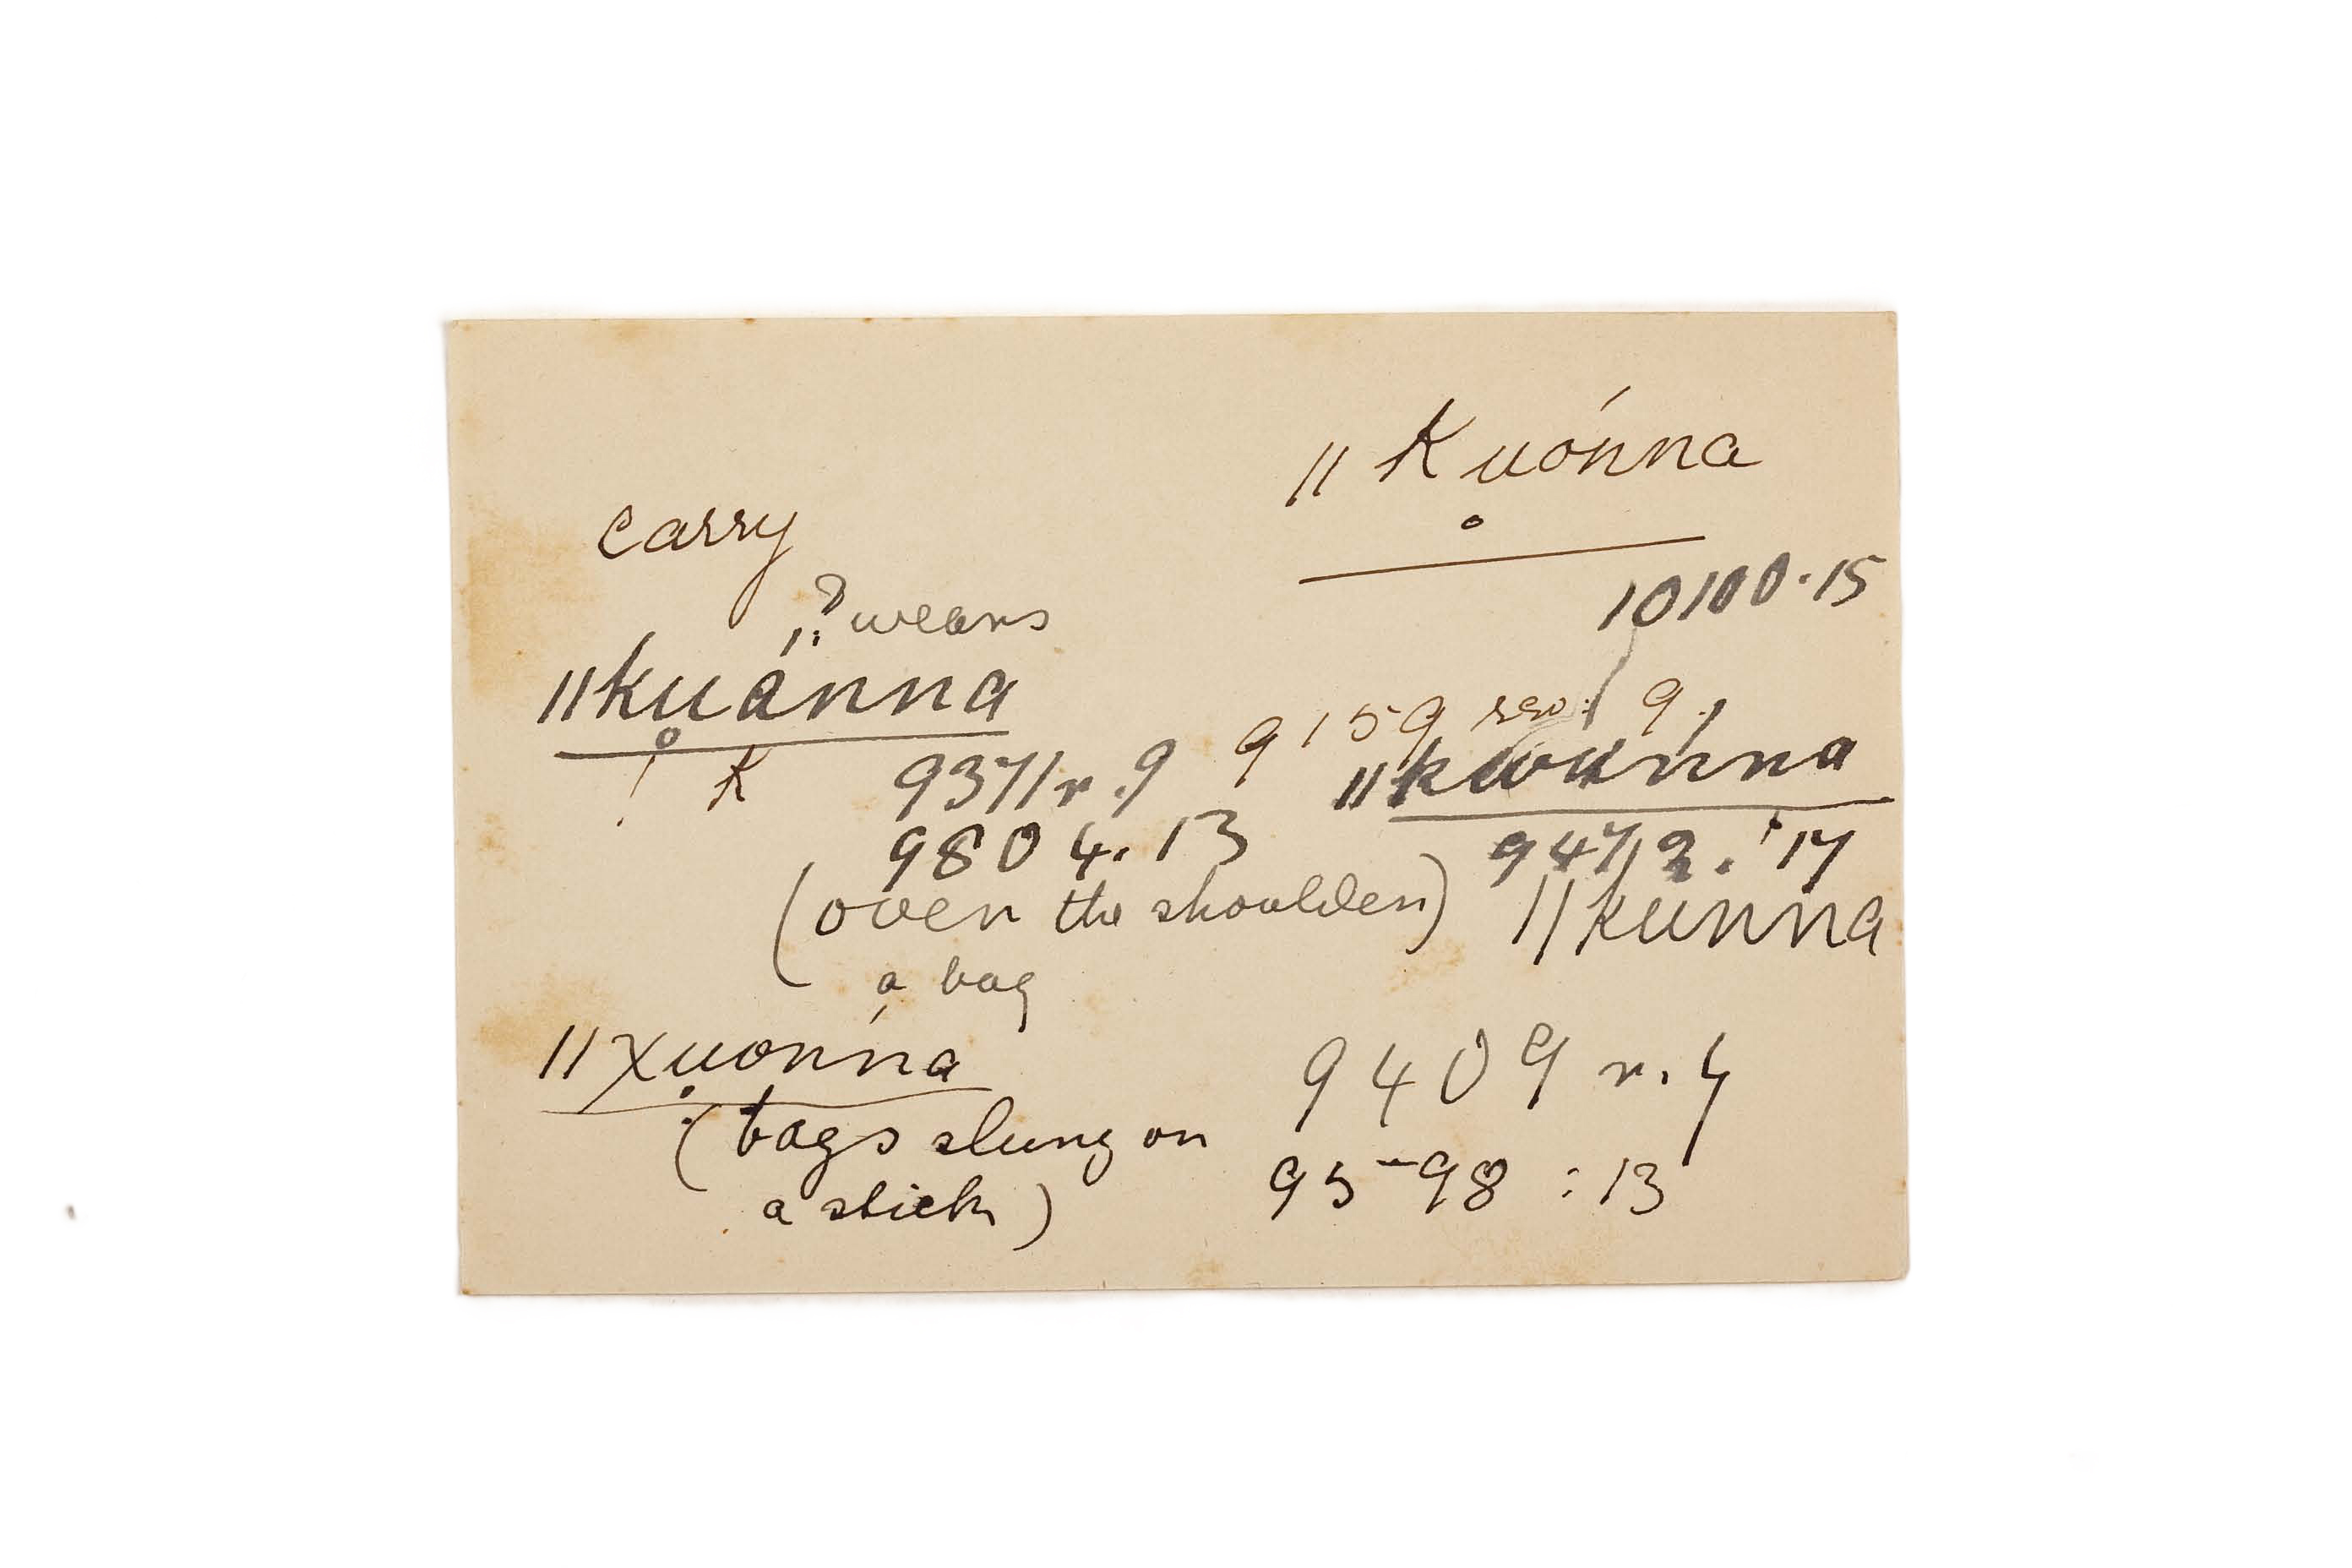 ||Kuónna
carry
10100.15
? wears
||kuánna
9159 rev. 9.
! K 9371 r. 9
||kwúnna
9804.13
9472.'17
(over the shoulder)
||kunna
a bag
||χuonńa
9409 r. 4
(bags slung on
9598 : 13
a stick)